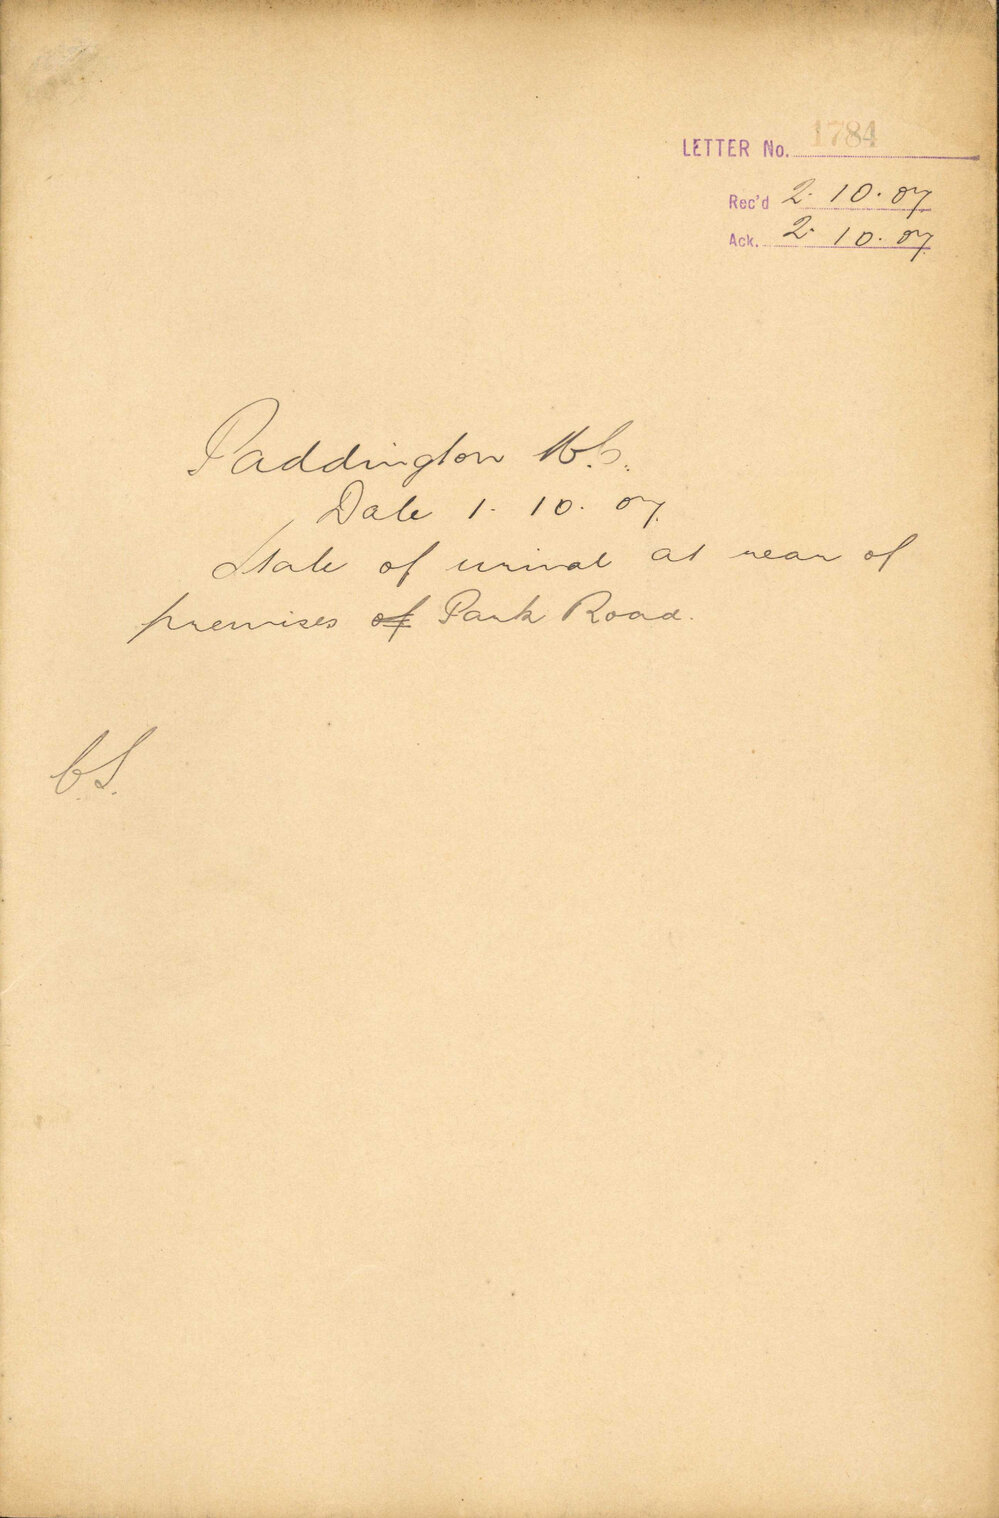 LETTER No. 1784
Rec'd 2. 10. 07
Ack. 2. 10. 07
Paddington
Date 1. 10. 07.
State of urinal at rear of
premises of Park Road.
C.S.